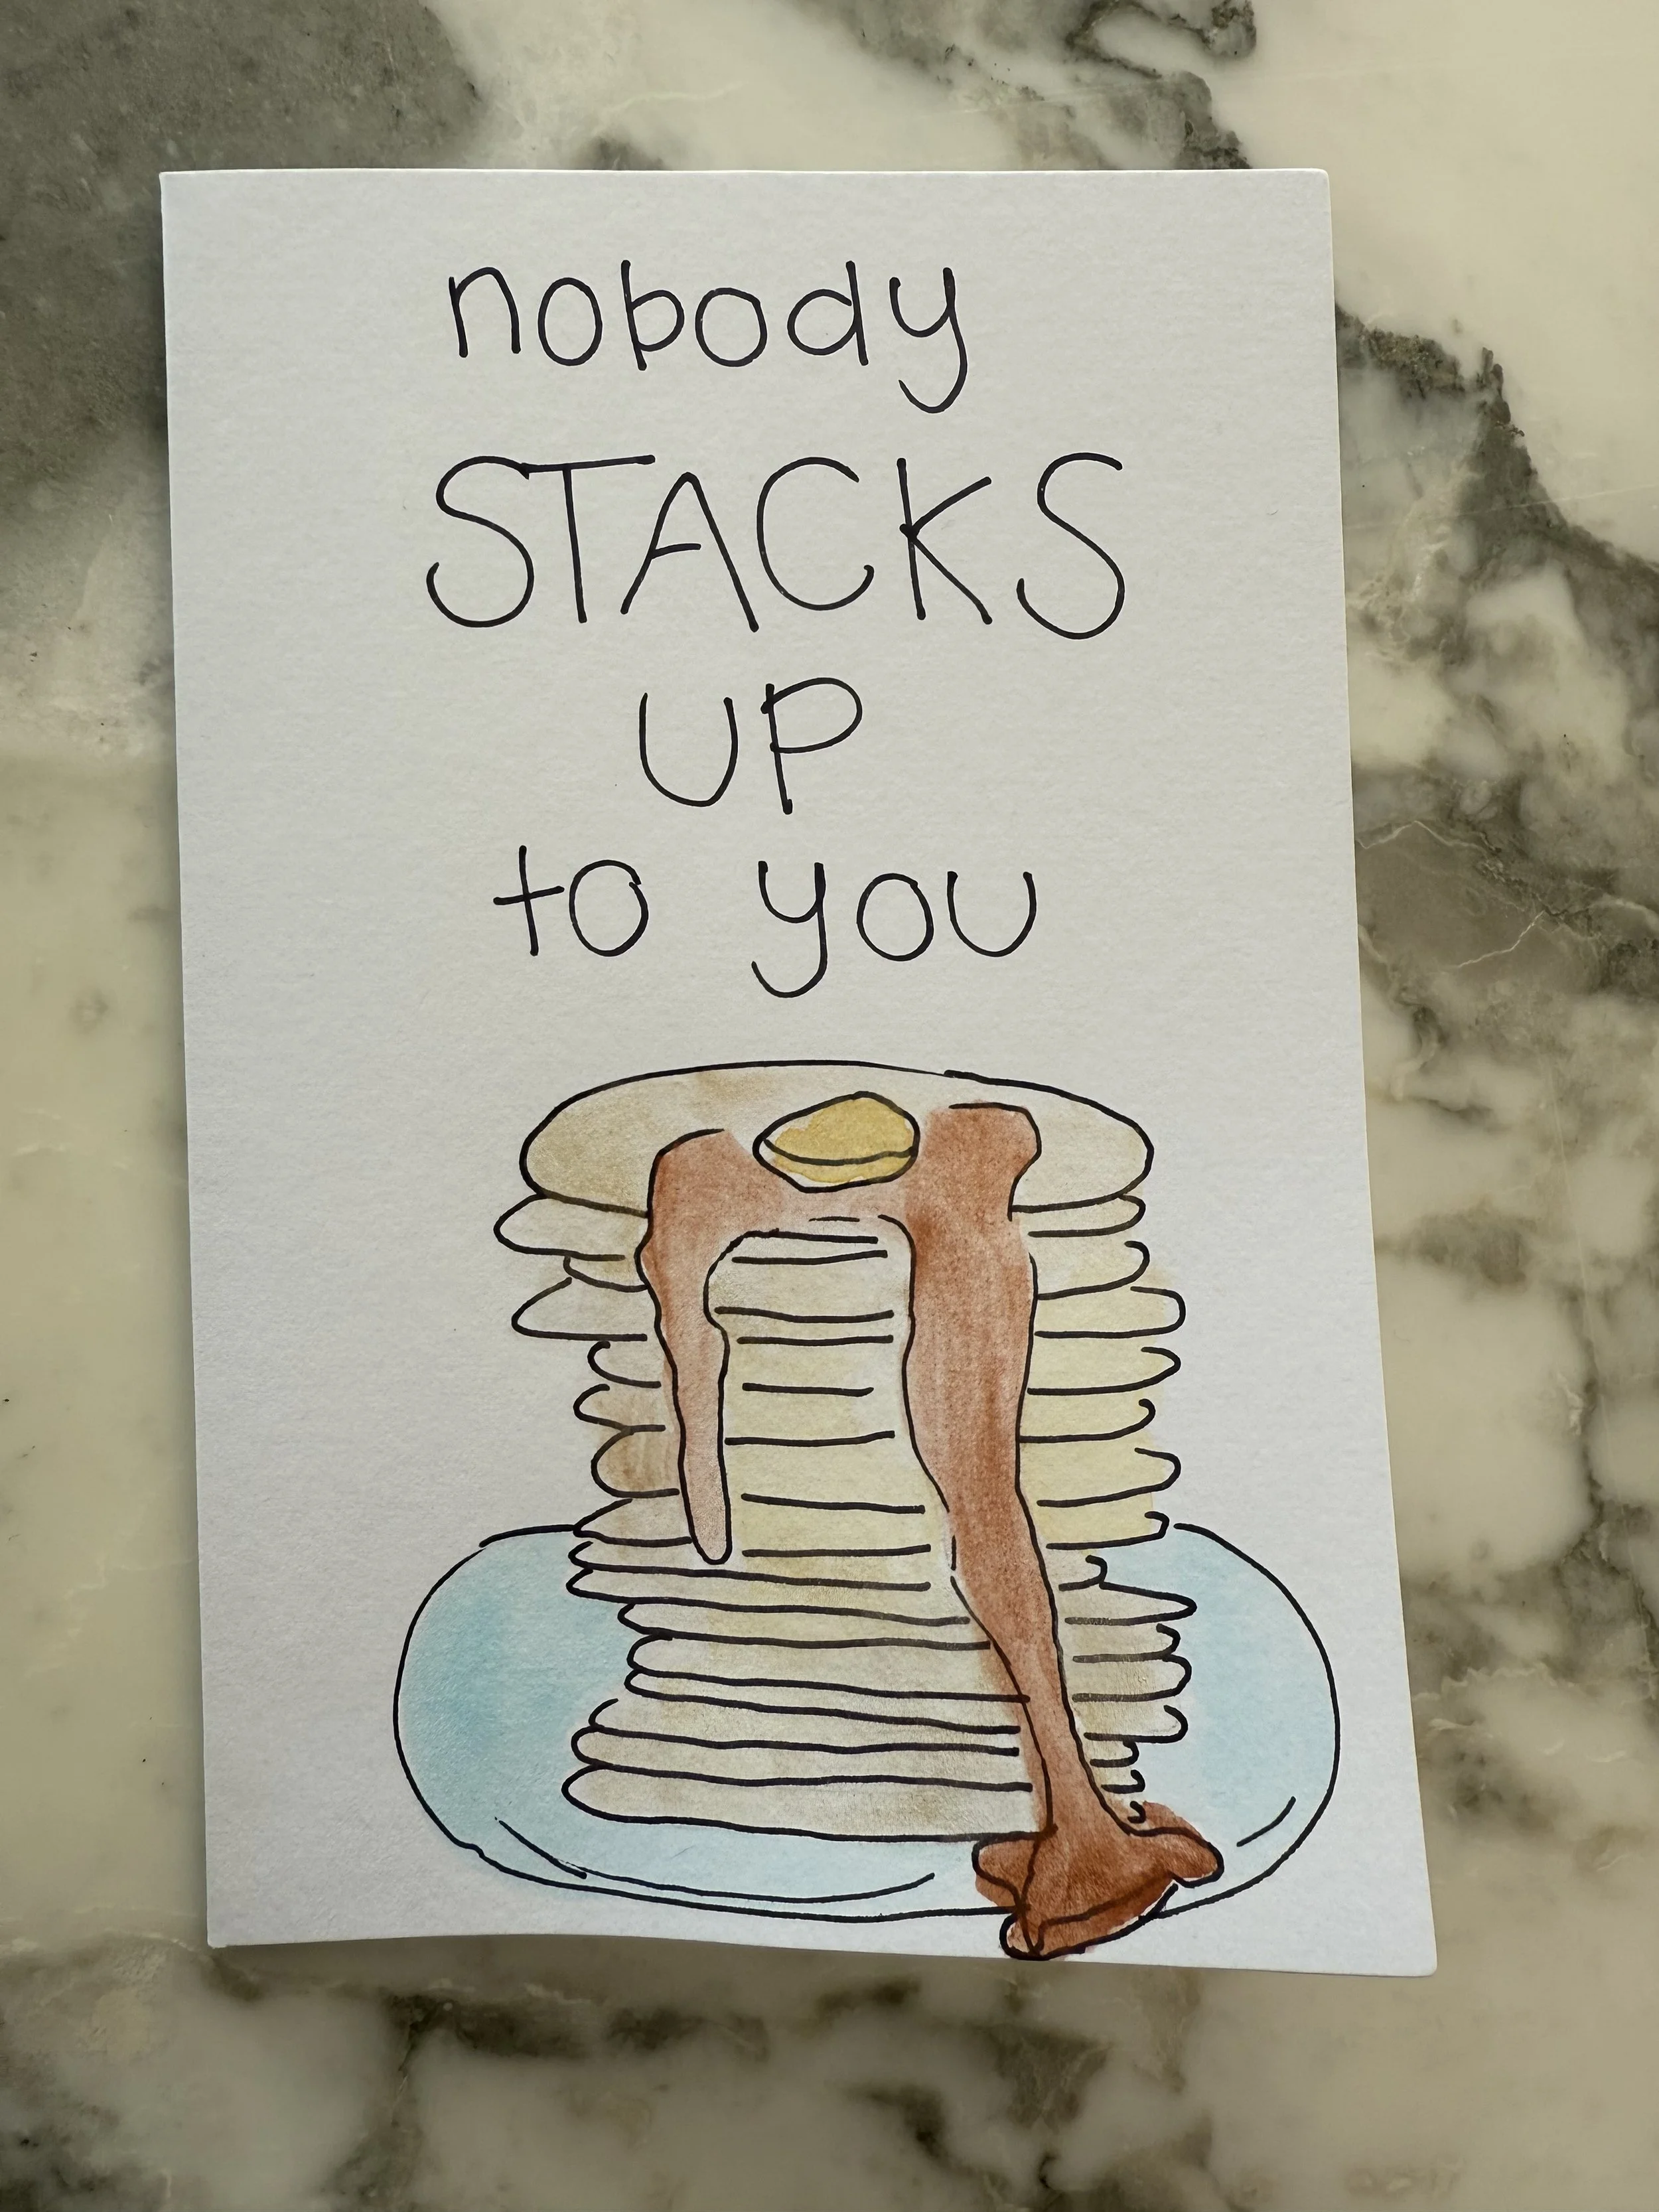 nobody
STACKS
UP
to you